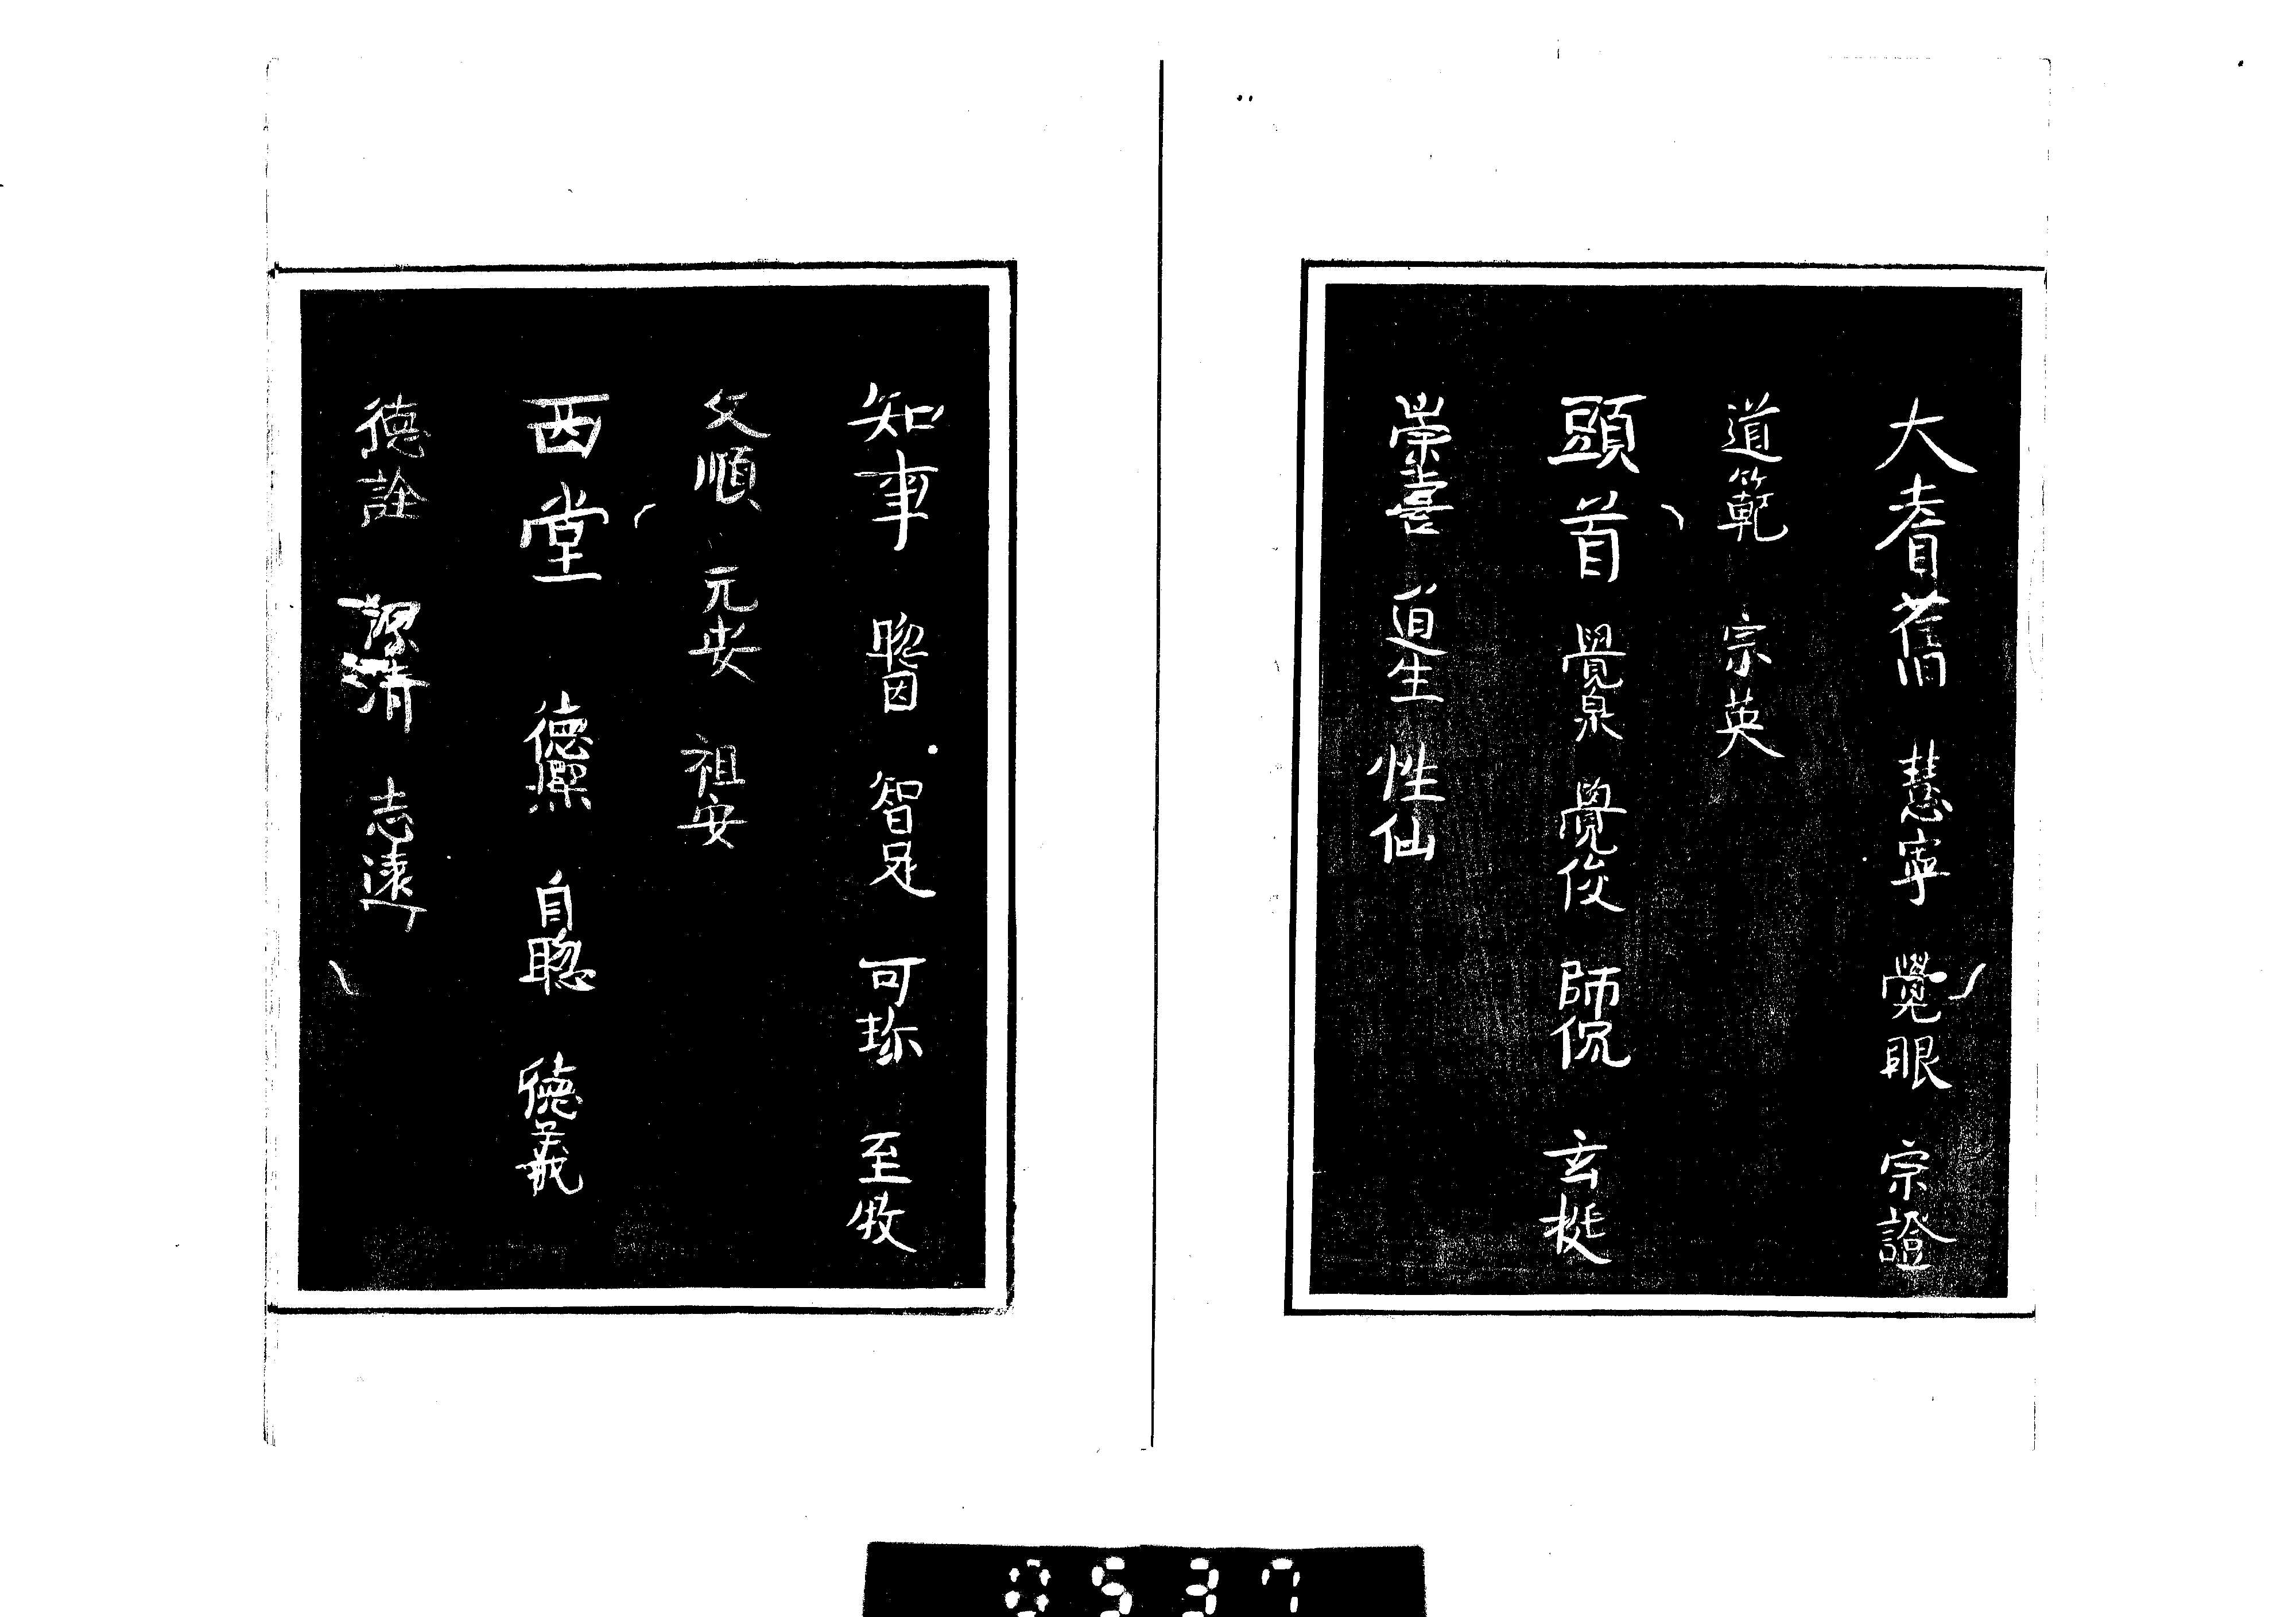 大耆舊 慧寧 覺眼 宗證
道範 宗英
頭首 覺泉 覺俊 師侃 玄挺
崇喜 道生 性仙
知事 聰因 智足 可珎 至牧
文順 元安 祖安
西堂 德潔 自聰 德義
德詮 潔清 志遠
0537